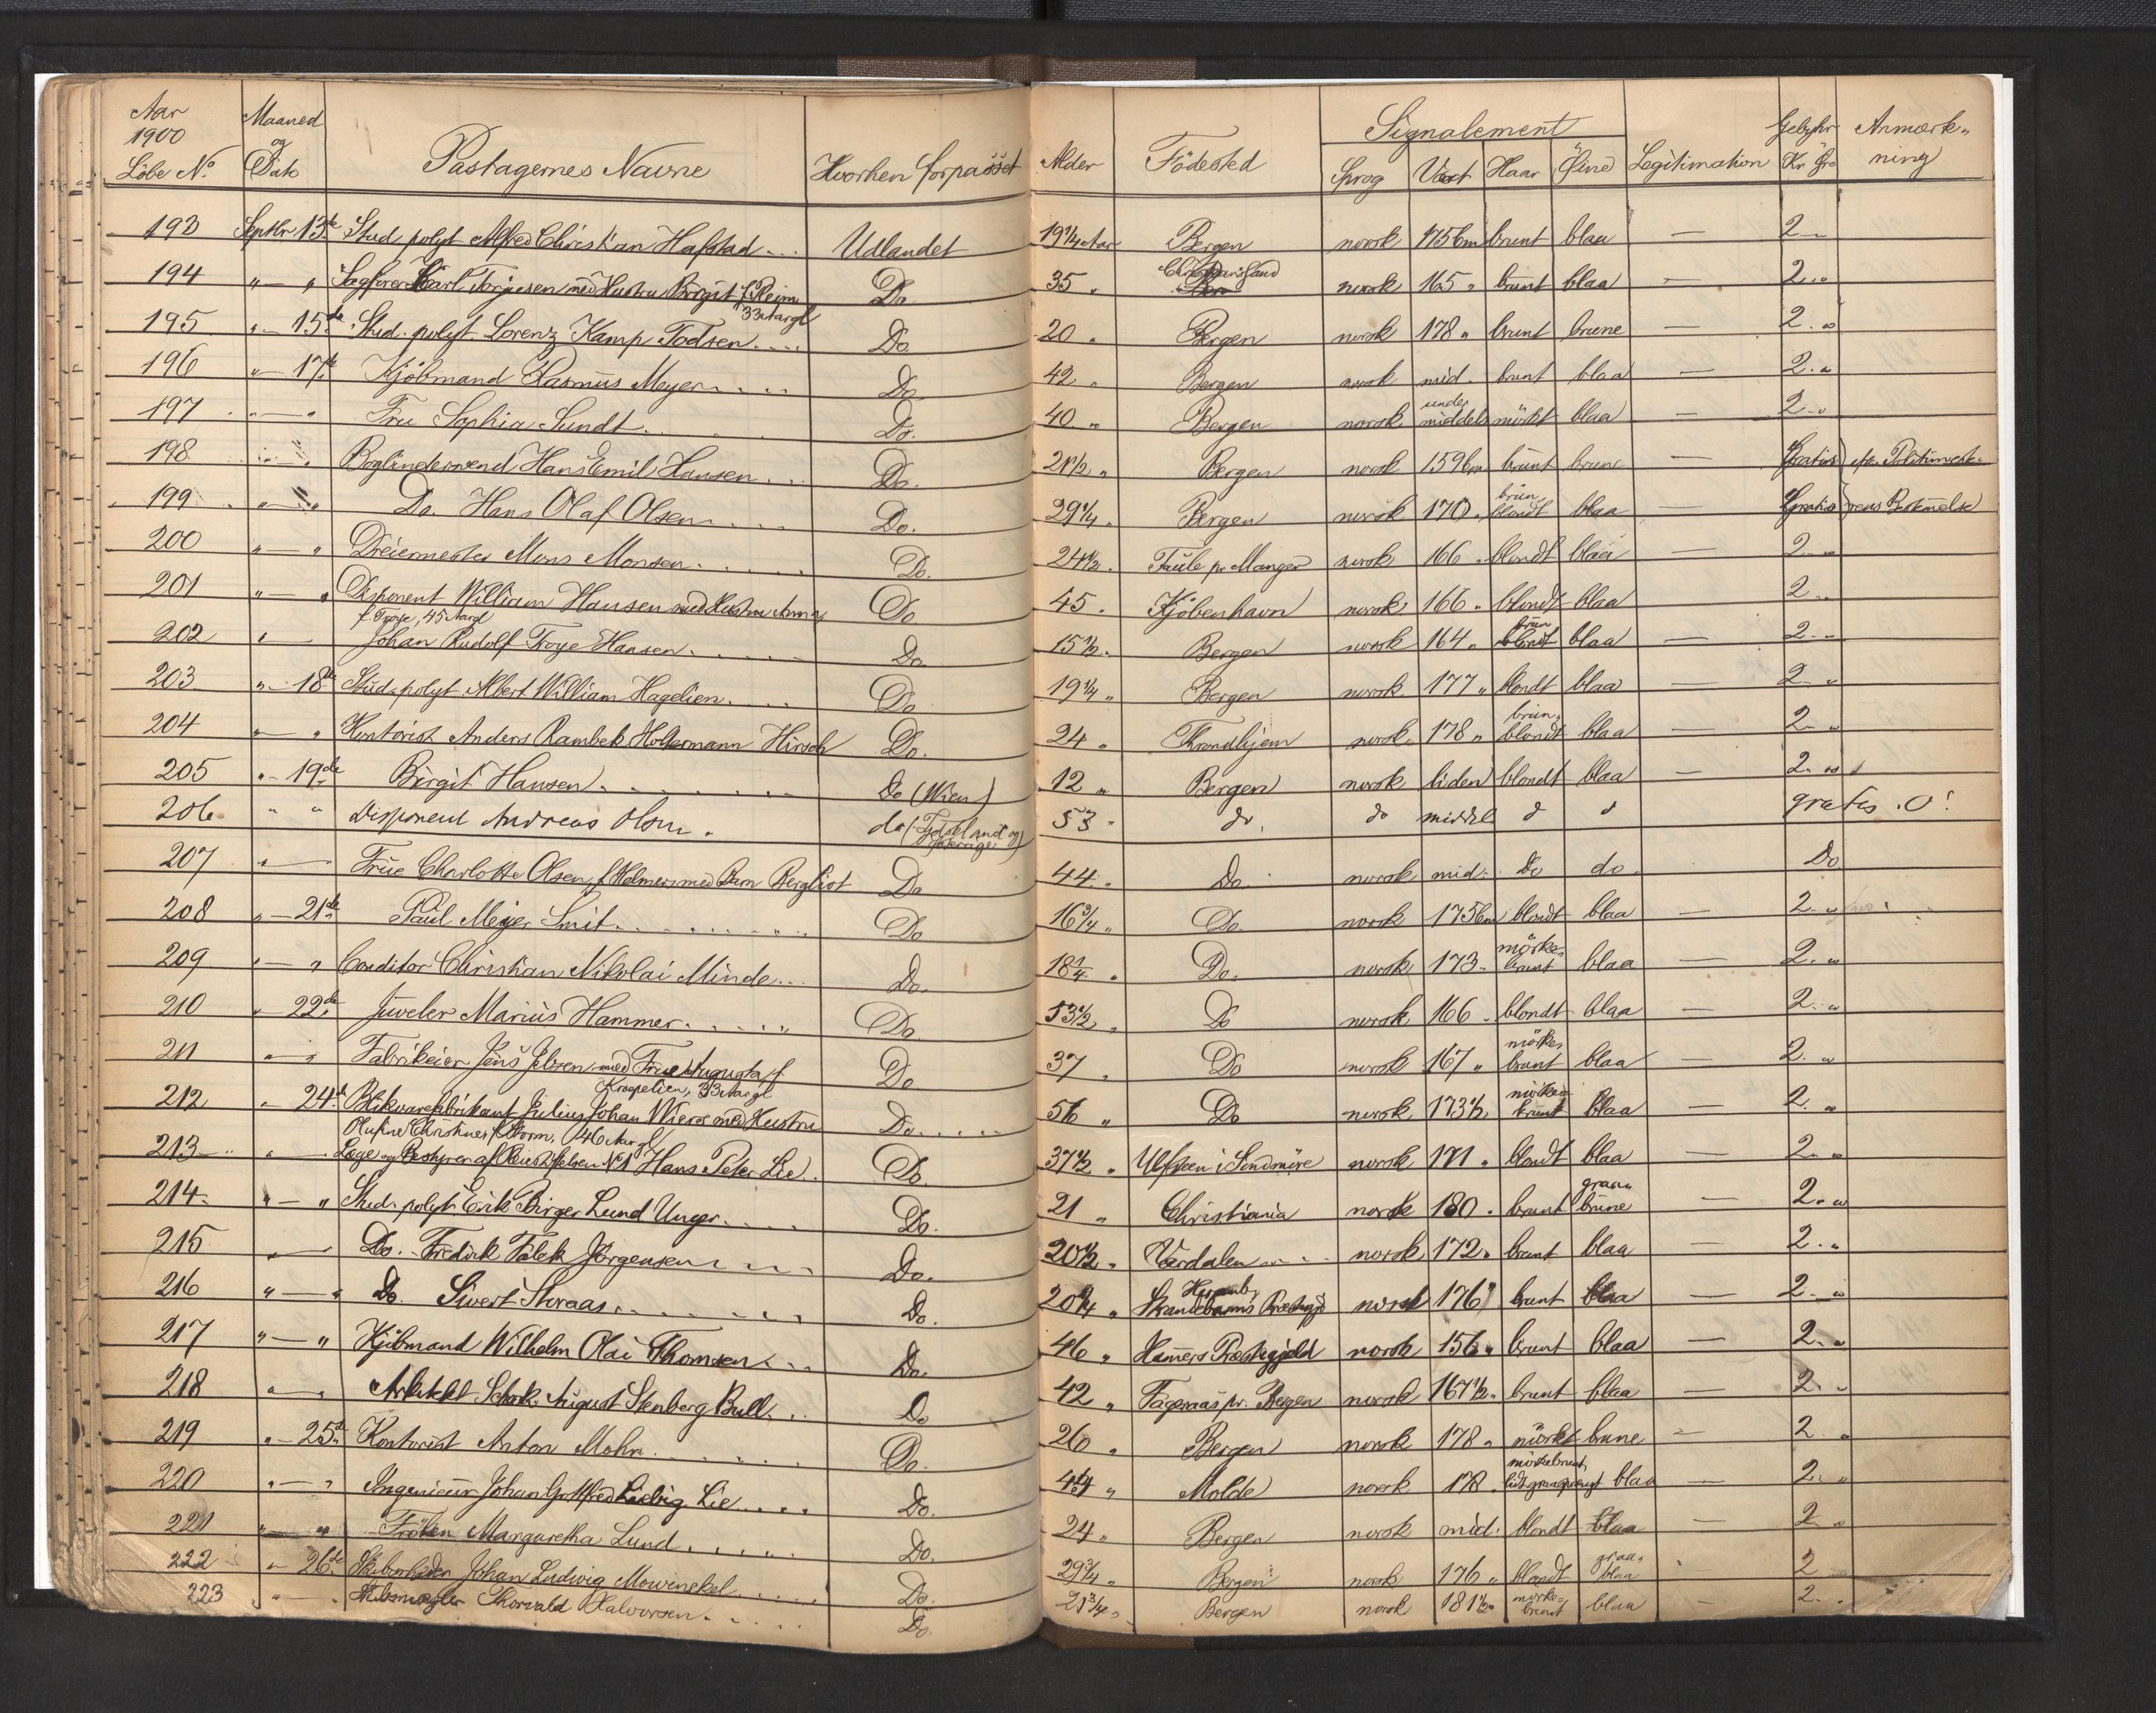 Aar 1900 Löbe No. Maaned og Dato Pastagernes Navne Hvorhen forpasset Alder Födested Signalement Sprog Vext Haar Öine Legitimation Gebyhr Kr Öre Anmærk- ning
193 Septbr 13de Stud. polyt Alfred Christian Hafstad Udlandet 19 1/4 Aar Bergen norsk 175 Cm brunt blaa — 2 "
194 " — " Sagförer Karl Torjusen med Hustru Birgit f. Reim 33 Aargl Do. 35 " Christianssand norsk 165 " brunt blaa — 2 "
195 " — 15de Stud. polyt. Lorenz Kamp Todsen Do. 20 " Bergen norsk 178 " brunt brune — 2 "
196 " — 17de Kjöbmand Rasmus Meyer Do. 42 " Bergen norsk mid. brunt blaa — 2 "
197 " — " Fru Sophia Sundt Do. 40 " Bergen norsk under middels mörkt blaa — 2 "
198 " — " Bogbindersvend Hans Emil Hansen Do. 21 1/2 " Bergen norsk 159 Cm brunt brune — Gratis efter Politimest-
199 " — " Do. Hans Olaf Olsen Do. 29 1/4 " Bergen norsk 170 " brun blondt blaa — Gratis rens Bestemelse
200 " — " Dreiermester Mons Monsen Do. 24 1/2 " pr Manger norsk 166 " blondt blaa — 2 "
201 " — " Disponent William Hansen med Hustru Anna f. Troye, 45 Aargl Do 45 " Kjöbenhavn norsk 166 " blondt blaa — 2 "
202 " — Johan Rudolf Troye Hansen Do. 15 1/2 " Bergen norsk 164 " brun blondt blaa — 2 "
203 " — 18de Stud. polyt Albert William Hagelien Do 19 1/4 " Bergen norsk 177 " blondt blaa — 2 "
204 " — " Kontorist Anders Rambek Holtermann Hirsch Do. 24 " Throndhjem norsk 178 " brun blondt blaa — 2 "
205 " — 19de Birgit Hansen Do (Wien) 12 " Bergen norsk liden blondt blaa — 2 "
206 " " Disponent Andreas Olsen do (Tydskland og Sverige) 53 " do. do middels d d gratis . 0!
207 " — Frue Charlotte Olsen f. Helmers med Barn Bergliot Do 44 " Do. norsk mid. Do do. Do
208 " — 21de Paul Meyer Smit Do 16 3/4 " Do. norsk 175 Cm blondt blaa — 2 "
209 " — " Conditor Christian Nikolai Minde Do. 18 1/4 " Do. norsk 173 " mörke- brunt blaa — 2 "
210 " — 22de Juveler Marius Hammer Do. 53 1/2 " Do norsk 166 " blondt blaa — 2 "
211 " — " Fabrikeier Jens Jebsen med Frue Augusta f. Kroepelien, 33 Aargl Do 37 " Do norsk 167 " mörke- brunt blaa — 2 "
212 " 24de Blikvarefabrikant Julius Johan Wiers med Hustru Olufine Christine f. Storm, 46 Aargl Do. 56 " Do norsk 173 1/2 mörke- brunt blaa — 2 "
213 " — Læge og Bestyrer af No 1 Hans Peter Lie Do. 37 1/2 " Ulfsteen i Söndmöre norsk 171 " blondt blaa — 2 "
214 " — " Stud. polyt Erik Birger Lund Unger Do. 21 " Christiania norsk 180 " brunt graa- brune — 2 "
215 " — Do. Fredrik Falck Jörgensen Do. 20 1/2 " Værdalen norsk 172 " brunt blaa — 2 "
216 " — " Do. Sivert Do. 20 1/4 " Præstegj norsk 176 " brunt blaa — 2 "
217 " — " Kjöbmand Wilhelm Olai Thomsen Do. 46 " Hamers Præstegjeld norsk 156 " brunt blaa — 2 "
218 " — " Arkitekt Schak August Stenberg Bull Do 42 " Fageraas pr. Bergen norsk 167 1/2 " brunt blaa — 2 "
219 " — 25de Kontorist Anton Mohn Do. 26 " Bergen norsk 178 " mörkt brune — 2 "
220 " — " Ingenieur Johan Gottfred Liebig Lie Do. 44 " Molde norsk 178 " mörkebrunt lidt graasprengt blaa — 2 "
221 " — " Fröken Margaretha Lund Do. 24 " Bergen norsk mid. blondt blaa — 2 "
222 " — 26de Skibsrheder Johan Ludwig Mowinckel Do. 29 3/4 " Bergen norsk 176 " blondt graa- blaa 2
223 " — Skibsmægler Thorvald Halvorsen Do. 21 3/4 " Bergen norsk 181 1/2 " mörke- brunt blaa — 2 "